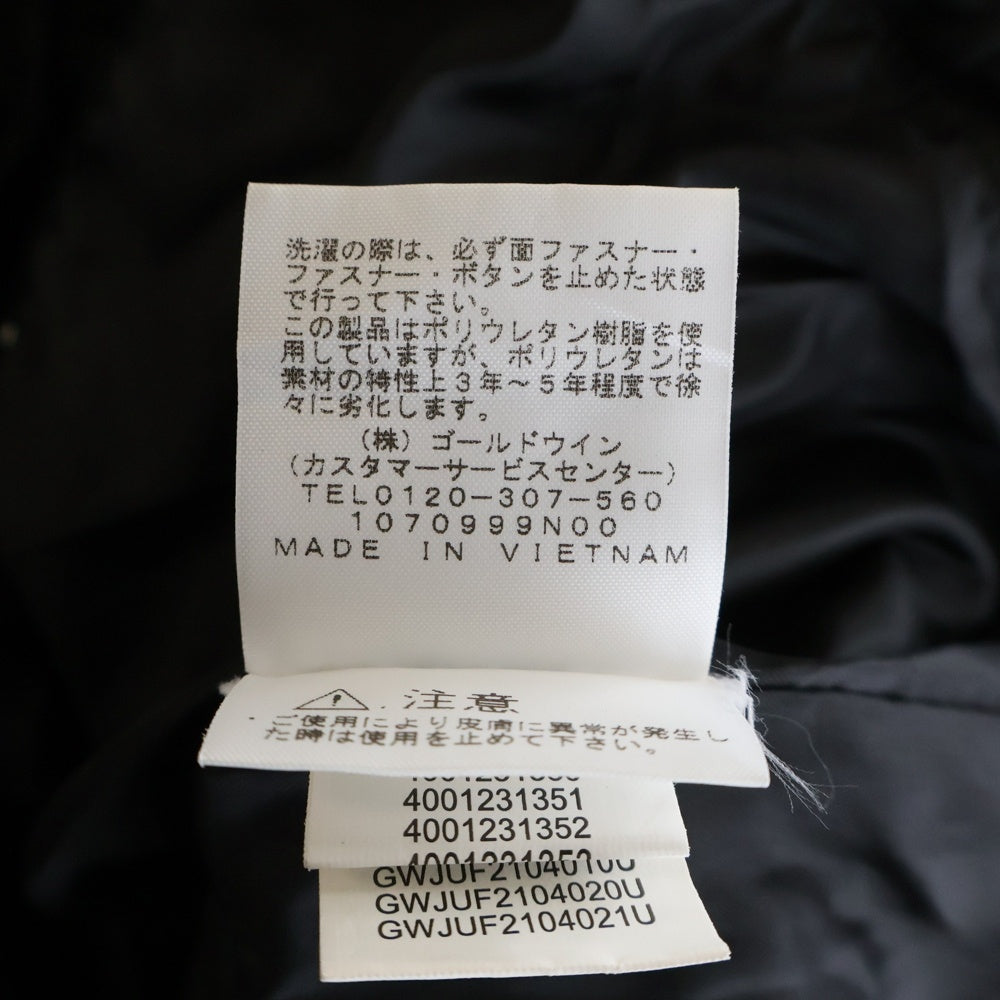 洗濯の際は、必ず面ファスナー・
ファスナー・ボタンを止めた状態
で行って下さい。
この製品はポリウレタン樹脂を使
用していますが、ポリウレタンは
素材の特性上3年〜5年程度で徐
々に劣化します。
(株)ゴールドウイン
(カスタマーサービスセンター)
TEL0120-307-560
1070999N00
MADE IN VIETNAM
⚠ 注意
・ご使用により皮膚に異常が発生し
た時は使用を止めて下さい。
4001231351
4001231352
GWJUF2104010U
GWJUF2104020U
GWJUF2104021U